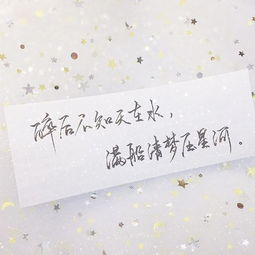 碎后不知天在水，
满船清梦压星河。